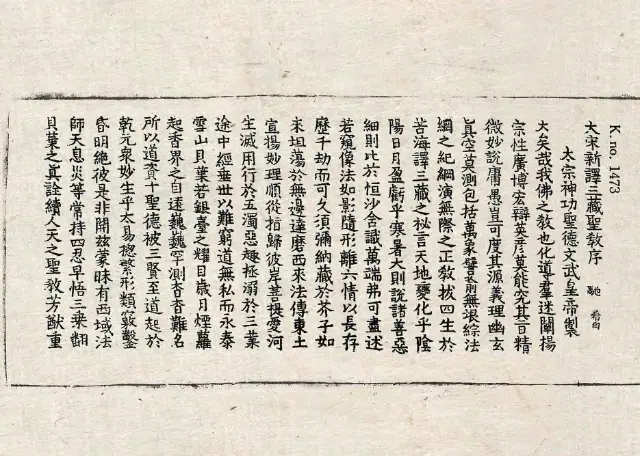 K. no. 1473
大宋新譯三藏聖教序
馳
太宗神功聖德文武皇帝製
大矣哉我佛之教也化導羣迷闡揚
宗性廣博宏辯英彦莫能究其旨精
微妙說庸愚豈可度其源義理幽玄
真空莫測包括萬象譬喻無垠綜法
網之紀綱演無際之正教拔四生於
苦海譯三藏之秘言天地變化乎陰
陽日月盈虧乎寒暑大則說諸善惡
細則比於恒沙含識萬端弗可盡述
若窺像法如影隨形離六情以長存
歷千劫而可久須彌納藏於芥子如
來坦蕩於無邊達磨西來法傳東土
宣揚妙理順從指歸彼岸菩提愛河
生滅用行於五濁惡趣拯溺於三業
途中經垂世以難窮道無私而永泰
雪山貝葉若銀臺之耀目歲月煙蘿
起香界之自遠巍巍罕測杳杳難名
所以道資十聖德被三賢至道起於
乾元衆妙生乎太易揔繁形類竅鑿
昏明絶彼是非開茲蒙昧有西域法
師天息災等常持四忍早悟三乘翻
貝葉之真詮續人天之聖教芳猷重